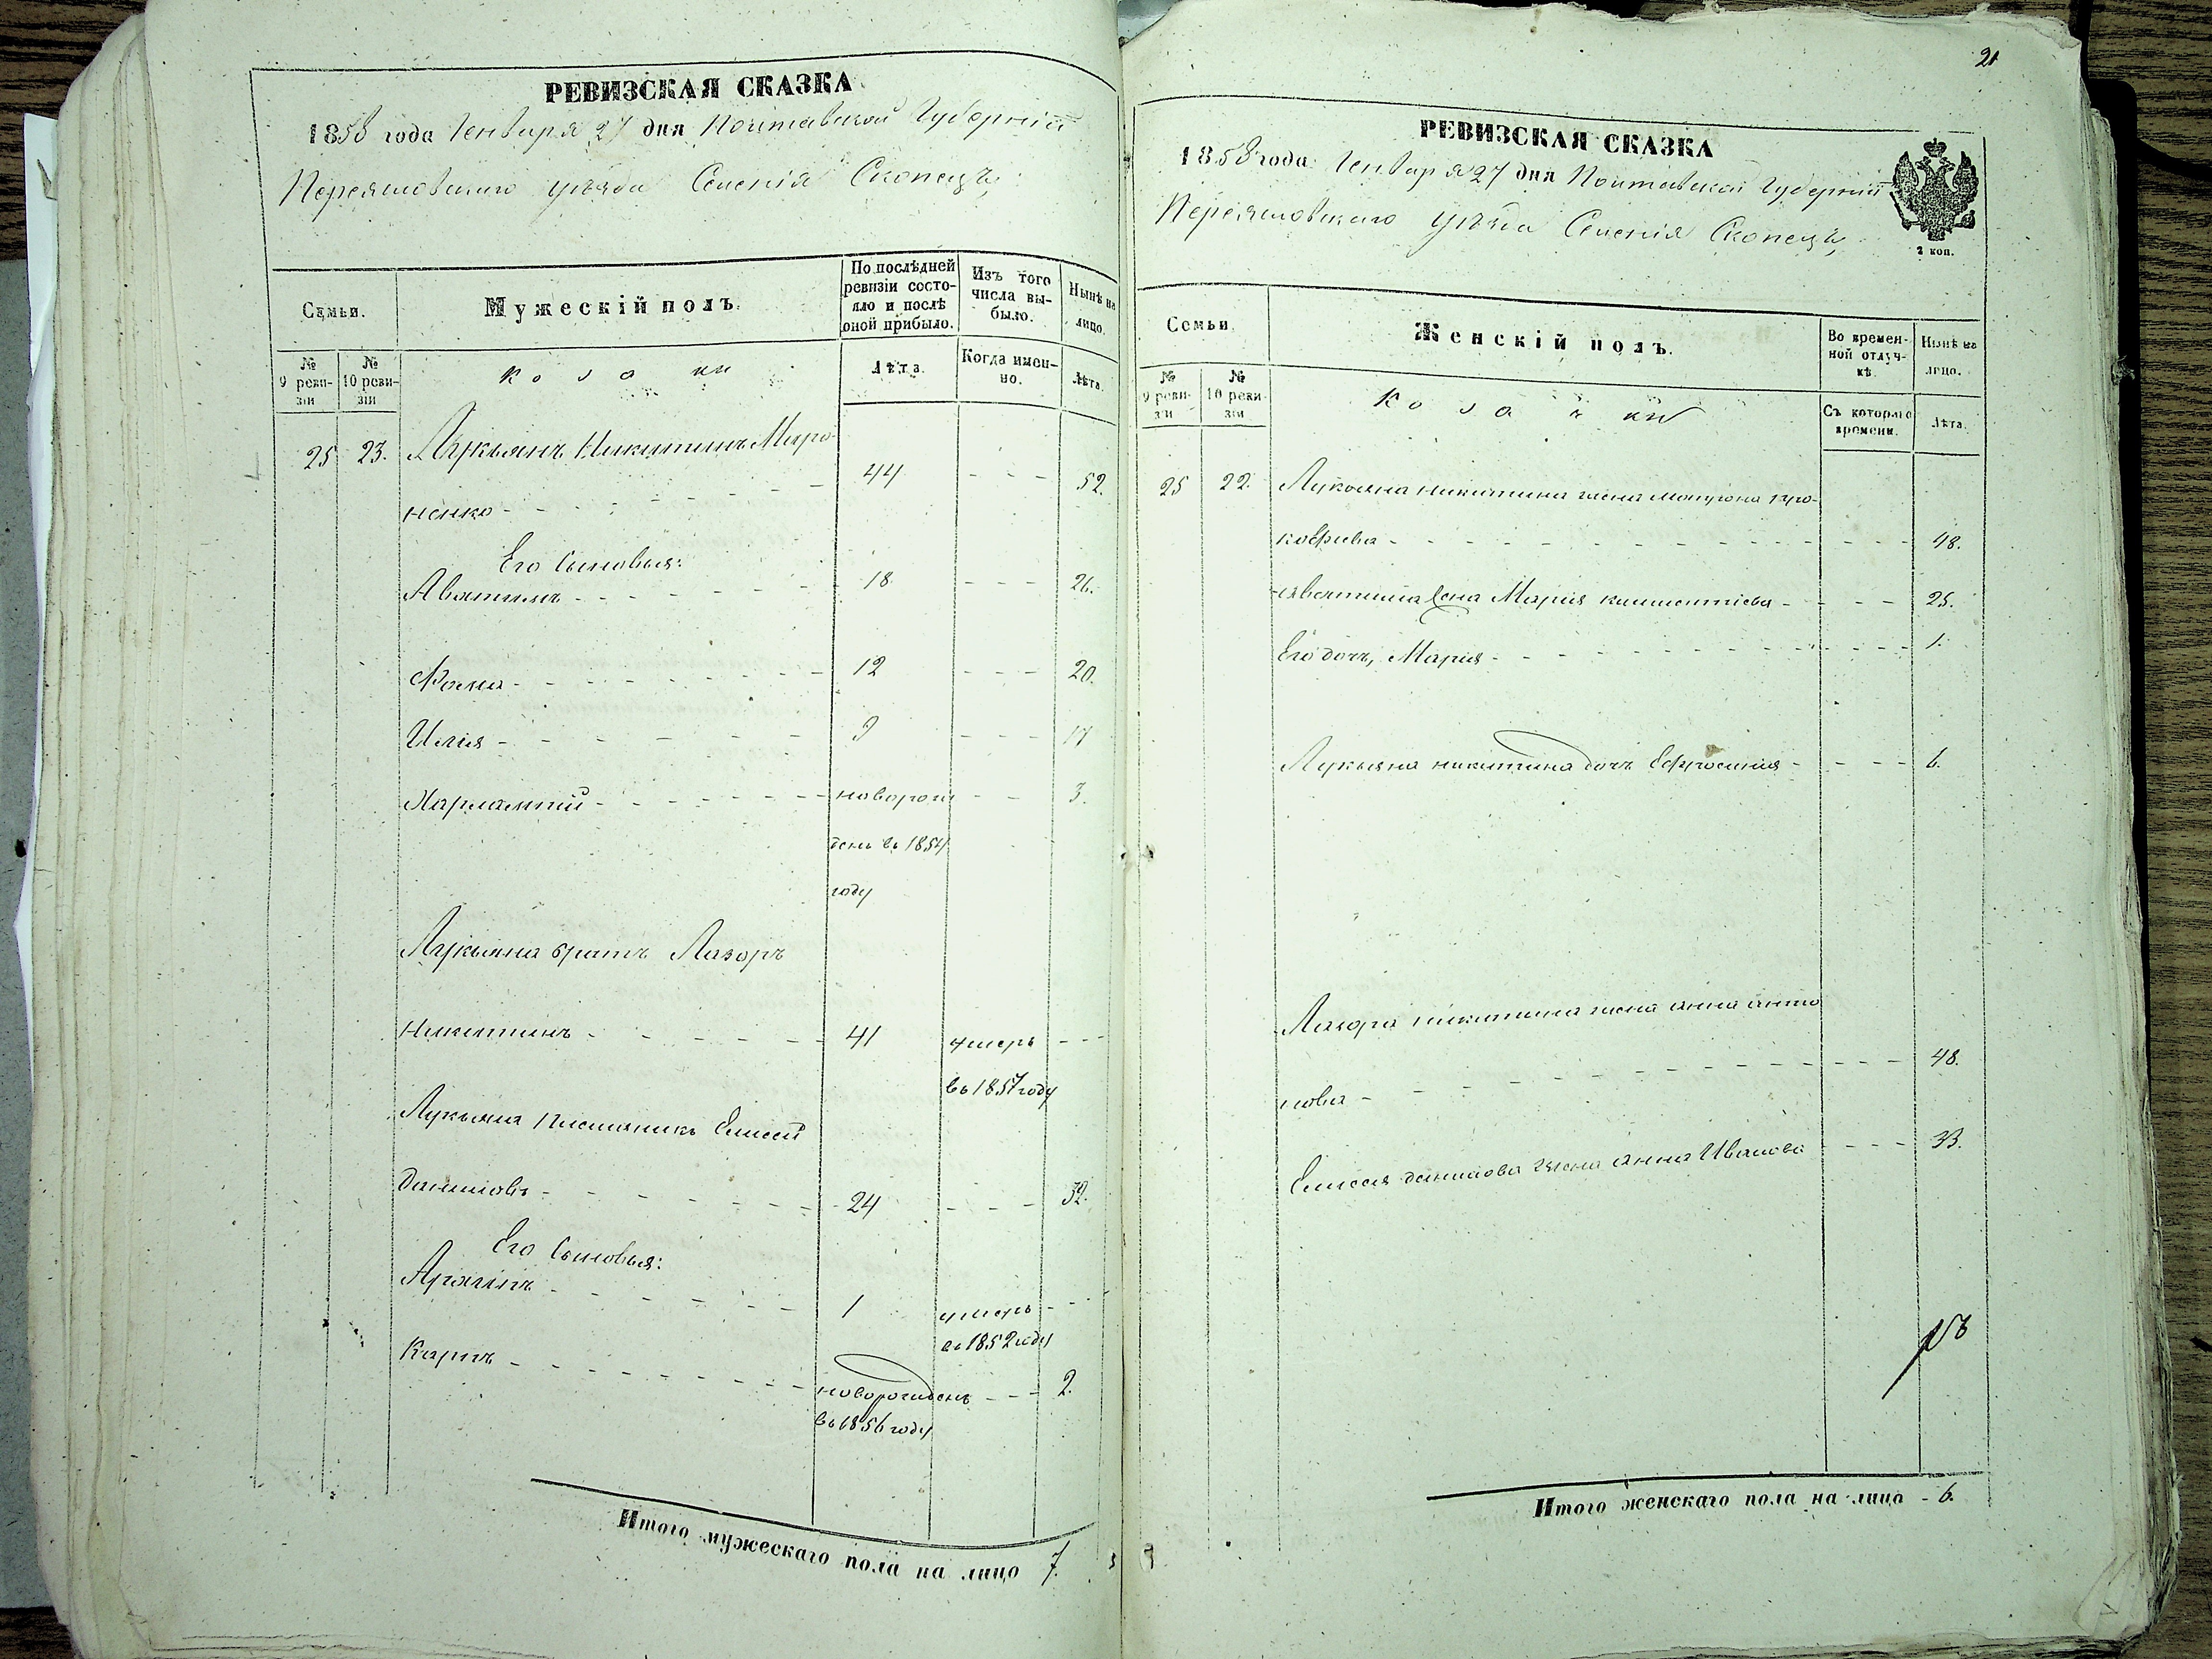 РЕВИЗСКАЯ СКАЗКА
1858 года Генваря 27 дня Полтавской Губерніи
Переяславскаго уѣзда Селенія Скопецъ
Семьи.
Мужескій полъ.
По послѣдней ревизіи состояло и послѣ оной прибыло.
Изъ того числа выбыло.
Нынѣ на лицо.
№ 9 ревизіи
№ 10 ревизіи
козаки
Лѣта.
Когда именно.
Лѣта.
25 23. Лукьянъ Никитинъ Миро-
ненко - 44 - - - 52.
Его Сыновья:
18 - - - 26.
Фома - 12 - - - 20.
Илія - 9 - - - 17
Харлампій - новорож - - 3.
денъ въ 1854
году
Лукьяна братъ Лазоръ
Никитинъ - 41 умеръ - - -
въ 1857 году
Лукьяна племяникъ Елисей
Даниловъ - 24 - - - 32.
Его Сыновья:
1 умеръ - - -
въ 1852 году
Карпъ - новорожденъ - - - 2.
въ 1856 году
Итого мужескаго пола на лицо 7.
21
РЕВИЗСКАЯ СКАЗКА
1858 года Генваря 27 дня Полтавской Губерніи
Переяславскаго уѣзда Селенія Скопецъ
2 коп.
Семьи.
Женскій полъ.
Во временной отлучкѣ.
Нынѣ на лицо.
№ 9 ревизіи
№ 10 ревизіи
козачки
Съ котораго времени.
Лѣта.
25 22. Лукьяна никитина жена про-
кофіева - 48.
жена Марія - 25.
Его дочь, Марія - 1.
Лукьяна никитина дочь Ефросинія - 6.
Лазора никитина жена анна анто
нова - 48.
Елисея данилова жена анна Иванова - 33.
Итого женскаго пола на лицо - 6.